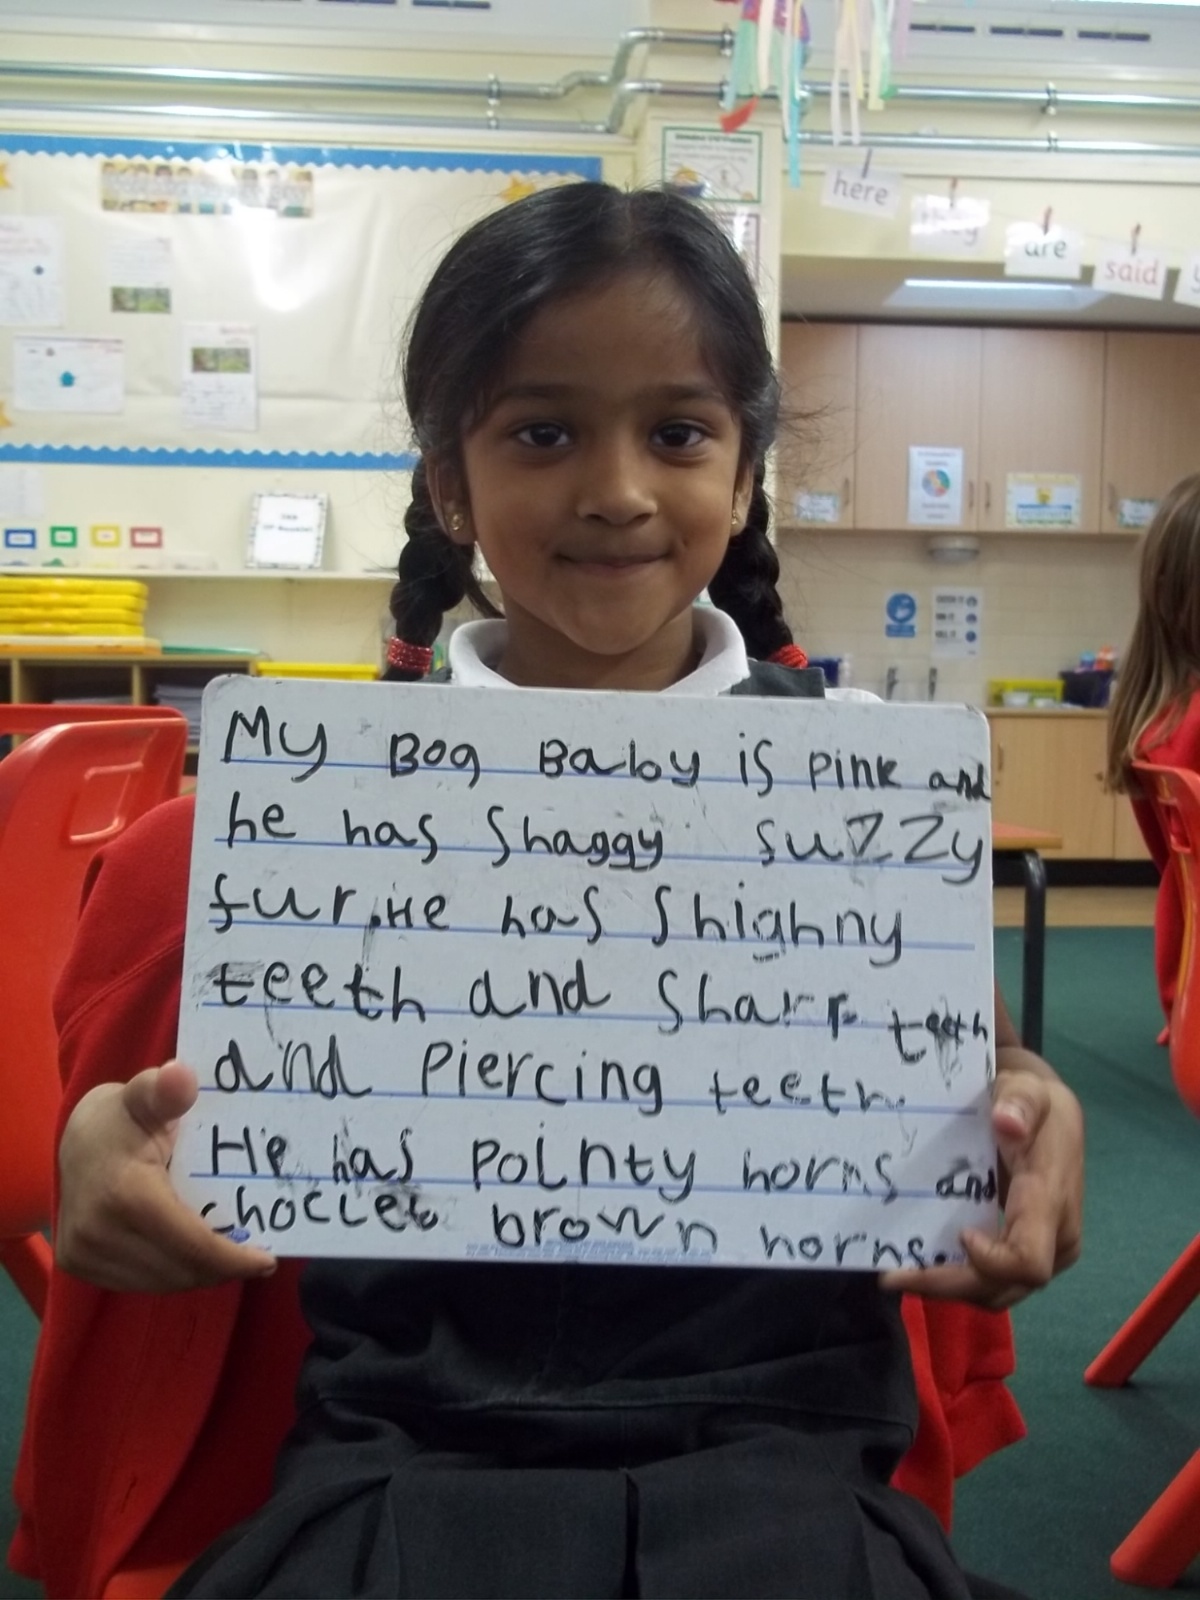 here
they
are
said
My Bog Baby is pink and
he has shaggy fuzzy
fur. He has shighny
teeth and sharp teeth
and piercing teeth.
He has pointy horns and
choclet brown horns.